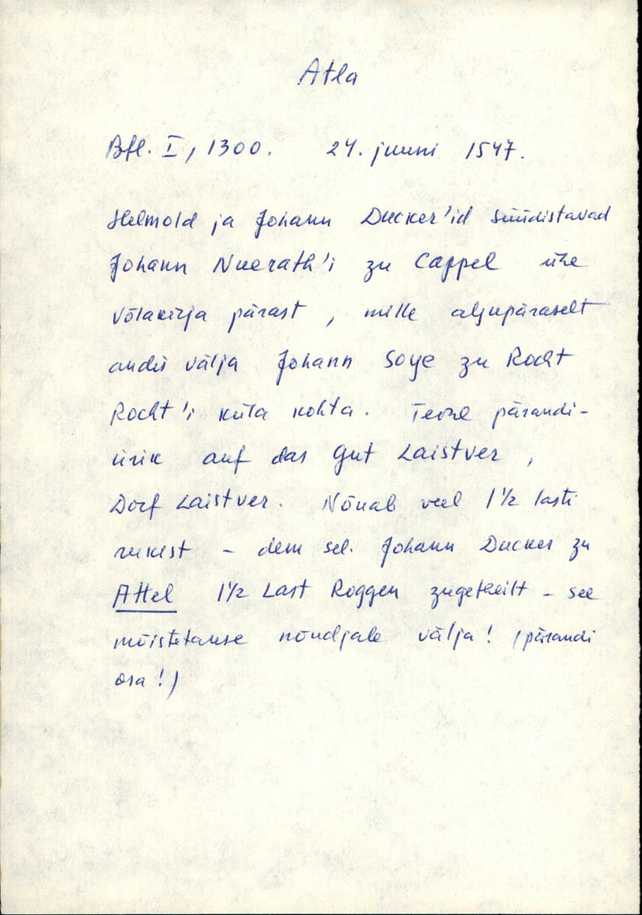 Atla
Bfl. I, 1300. 24. juuni 1547.
Helmold ja Johann Ducker'id süüdistavad
Johann Nuerath'i zu Cappel ühe
võlakirja pärast, mille algupäraselt
andis välja Johann Soye zu Rocht
Rocht'i küla kohta. Teine pärandi-
ürik auf das Gut Laistver,
Dorf Laistver. Nõuab veel 1 1/2 lasti
rukist - dem sel. Johann Ducker zu
Attel 1 1/2 Last Roggen zugetheilt - see
mõistetakse nõudjale välja! (pärandi
osa!)